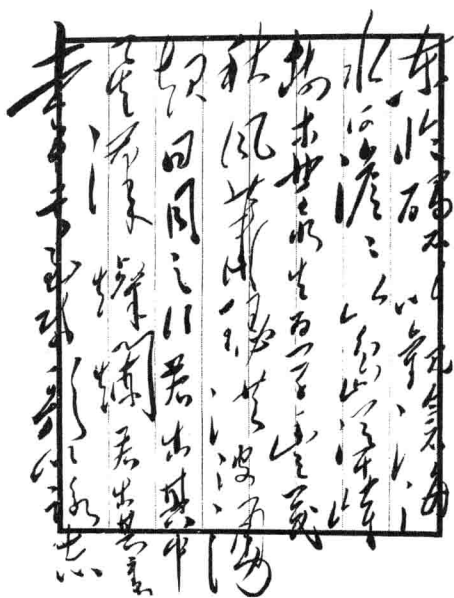 東臨碣石以觀滄海
水何澹澹山島竦峙
樹木叢生百草豐茂
秋風蕭瑟洪波湧
起日月之行若出其中
星漢燦爛若出其裏
幸甚至哉歌以詠志